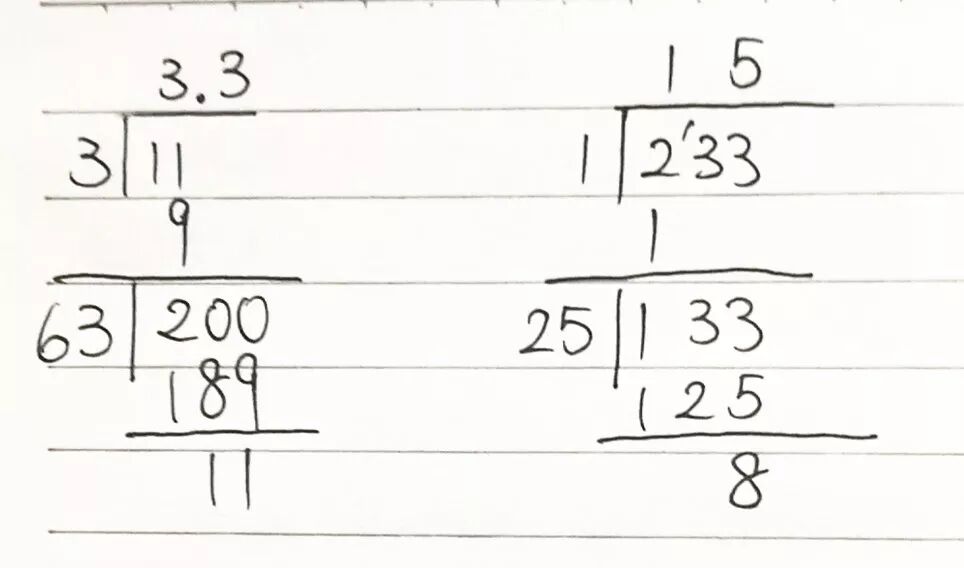 3.3 1 5
3 11 1 2'33
9 1
63 200 25 1 33
189 125
11 8